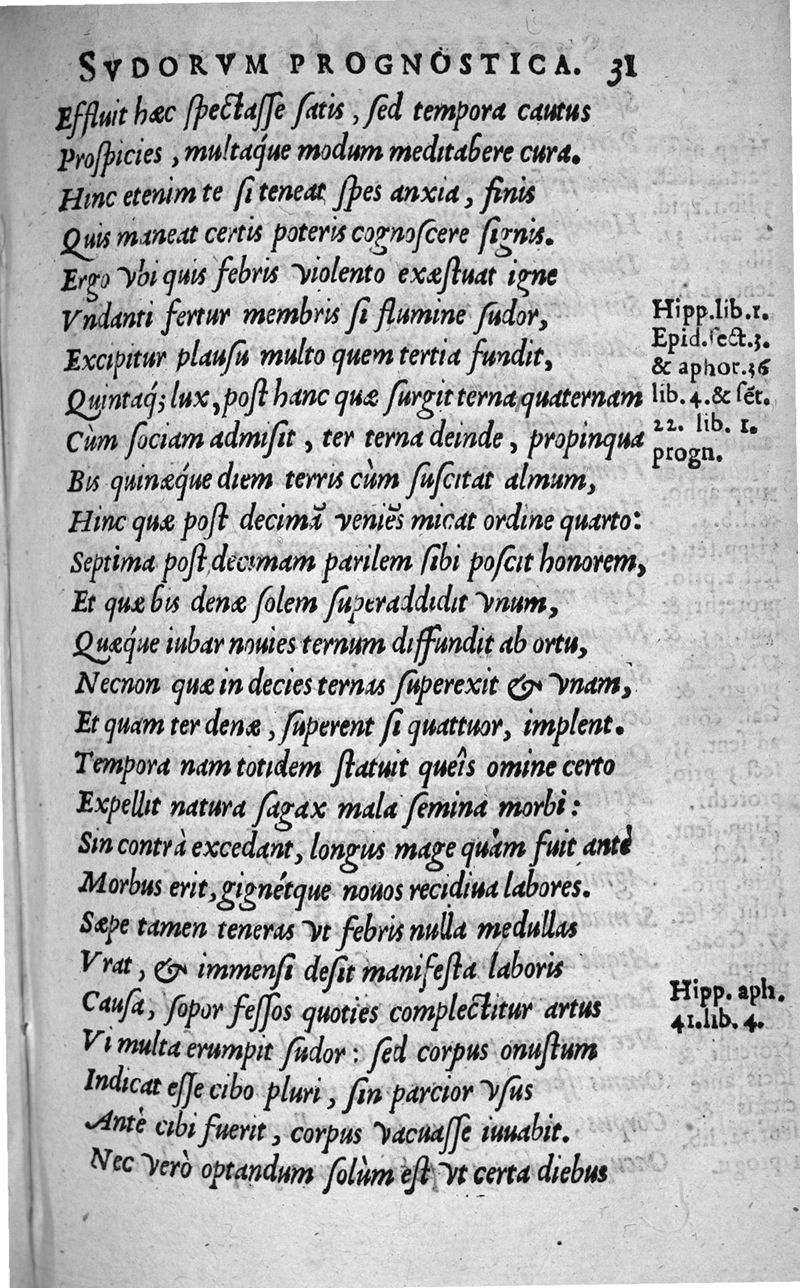 SVDORVM PROGNOSTICA. 31
Effluit hæc ſpectaſſe ſatis, ſed tempora cautus
Proſpicies, multaq́ue modum meditabere cura.
Hinc etenim te ſi teneat ſpes anxia, finis
Quis maneat certis poteris cognoſcere ſignis.
Ergo vbi quis febris violento exæſtuat igne
Vndanti fertur membris ſi flumine ſudor,
Excipitur plauſu multo quem tertia fundit,
Quintaq́; lux, poſt hanc quæ ſurgit terna quaternam
Cùm ſociam admiſit, ter terna deinde, propinqua
Bis quinæq́ue diem terris cùm ſuſcitat almum,
Hinc quæ poſt decimā veniēs micat ordine quarto:
Septima poſt decimam parilem ſibi poſcit honorem,
Et quæ bis denæ ſolem ſuperaddidit vnum,
Quæq́ue iubar nouies ternum diffundit ab ortu,
Necnon quæ in decies ternas ſuperexit & vnam,
Et quam ter denæ, ſuperent ſi quattuor, implent.
Tempora nam totidem ſtatuit queîs omine certo
Expellit natura ſagax mala ſemina morbi:
Sin contrà excedant, longus mage quàm fuit antè
Morbus erit, gignétque nouos recidiua labores.
Sæpe tamen teneras vt febris nulla medullas
Vrat, & immenſi deſit manifeſta laboris
Cauſa, ſopor feſſos quoties complectitur artus
Vi multa erumpit ſudor: ſed corpus onuſtum
Indicat eſſe cibo pluri, ſin parcior vſus
Antè cibi fuerit, corpus vacuaſſe iuuabit.
Nec verò optandum ſolùm eſt vt certa diebus
Hipp.lib.1.
Epid.ſect.3.
& aphor.36
lib.4.& ſēt.
22. lib. 1.
progn.
Hipp. aph.
41.lib.4.